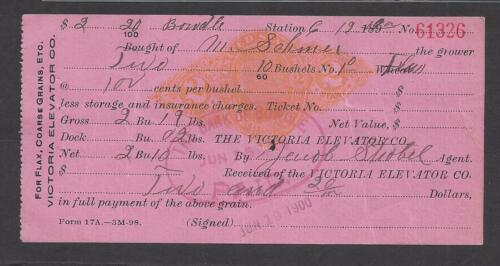 FOR FLAX, COARSE GRAINS, ETC.
VICTORIA ELEVATOR CO.
$ 2 20/100 Bowdle Station 6 12 No. 61326
Bought of M. Schmer the grower
Two 10/60 Bushels No. 1
@ 102 cents per bushel $
less storage and insurance charges. Ticket No. $
Gross 2 Bu 12 lbs. Net Value, $
Dock Bu. 02 lbs. THE VICTORIA ELEVATOR CO.
Net 2 Bu 10 lbs. By Jacob Strobel Agent.
Received of the VICTORIA ELEVATOR CO.
$ Two and 20/100 Dollars,
in full payment of the above grain.
Form 17A.—3M-98. (Signed)
JUN 1900